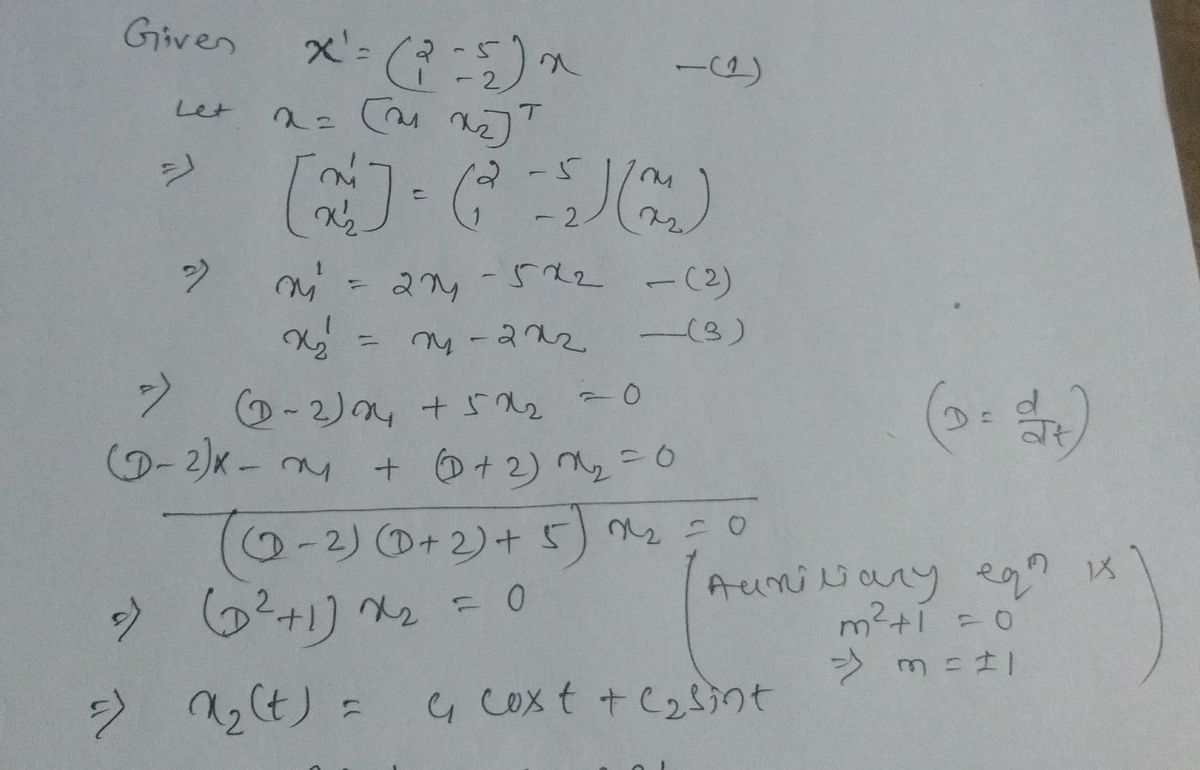 Given x' = (2 -5 1 -2) x —(1)
Let x = [x1 x2]^T
=> [x1' x2'] = (2 -5 1 -2)(x1 x2)
=> x1' = 2x1 - 5x2 —(2)
x2' = x1 - 2x2 —(3)
=> (D-2)x1 + 5x2 = 0 (D = d/dt)
(D-2)x - x1 + (D+2)x2 = 0
((D-2)(D+2)+5) x2 = 0
(Auxiliary eqn is
=> (D²+1) x2 = 0
m²+1 = 0
=> m = ±1)
=> x2(t) = c1 cost + c2 sint